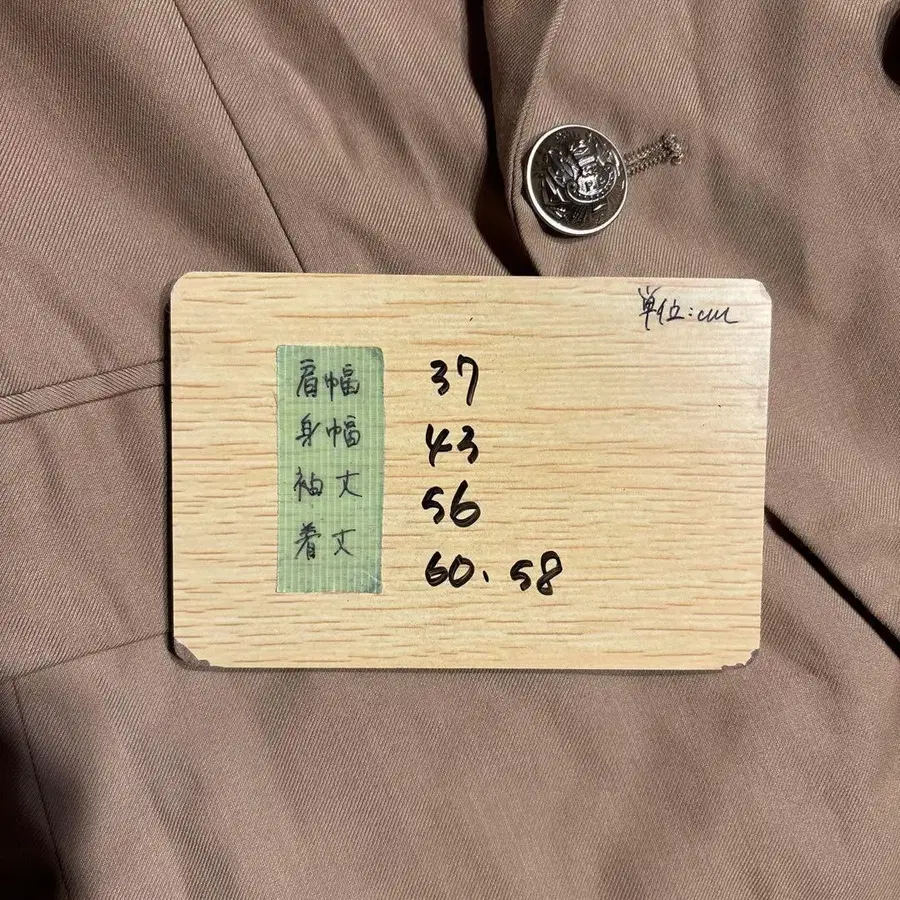 単位:cm
肩幅 37
身幅 43
袖丈 56
着丈 60.58